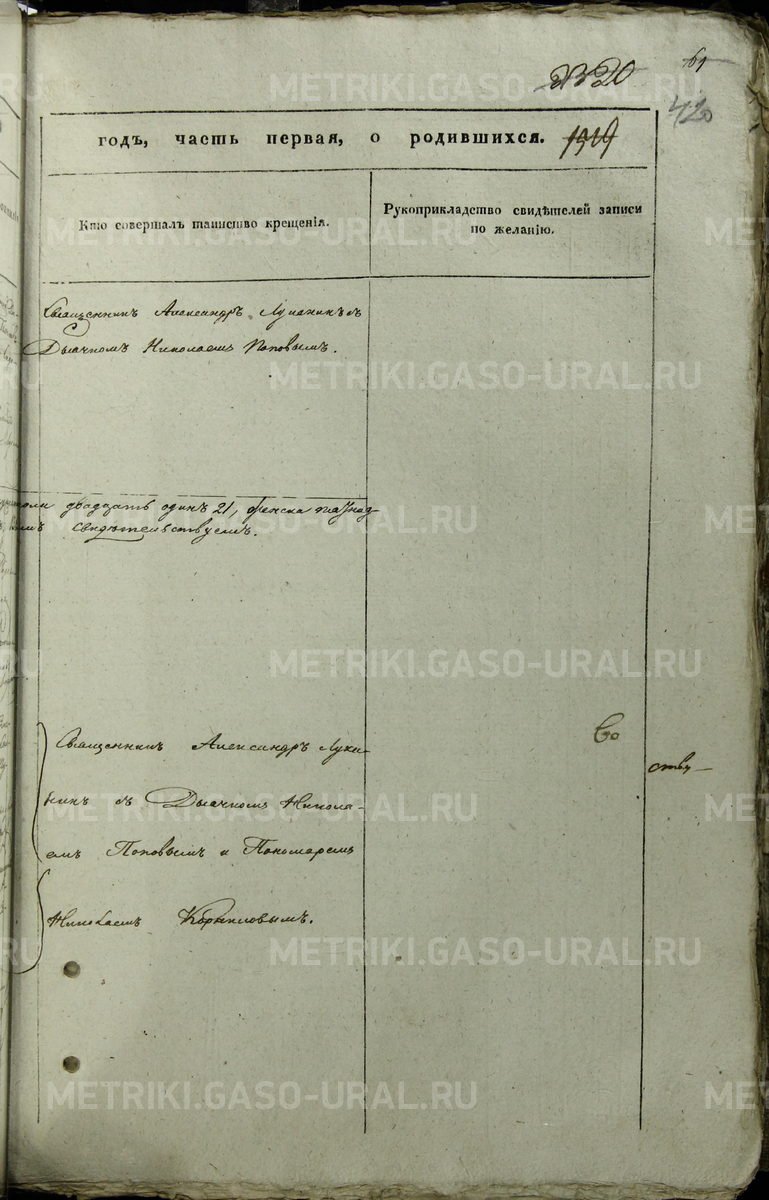 2320
61
420
годъ, часть первая, о родившихся. 1919
Кто совершалъ таинство крещенія.
Рукоприкладство свидѣтелей записи
по желанію.
Священникъ Александръ Луканинъ съ
Дьячкомъ Николаемъ Поповымъ.
двадцать одинъ 21, женска
свидѣтельствуемъ.
Священникъ Александръ Лука-
нинъ съ Дьячкомъ Никола-
емъ Поповымъ и Пономаремъ
Николаемъ Корниловымъ.
Со
ству
METRIKI.GASO-URAL.RU